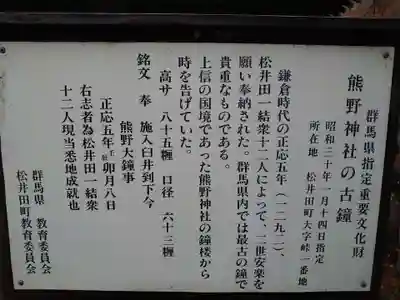 群馬県指定重要文化財
熊野神社の古鐘
昭和三十年一月十四日指定
所在地 松井田町大字峠一番地
鎌倉時代の正応五年(一二九二)、
松井田一結衆十二人によって、二世安楽を
願い奉納された。群馬県内では最古の鐘で
貴重なものである。
上信の国境であった熊野神社の鐘楼から
時を告げていた。
高サ 八十五糎 口径 六十三糎
銘文 奉 施入臼井到下今
熊野大鐘事
正応五年壬辰卯月八日
右志者為松井田一結衆
十二人現当悉地成就也
群馬県 教育委員会
松井田町教育委員会